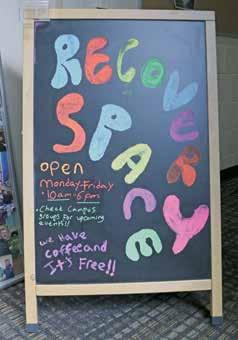 RECOVERY
SPACE
open
Monday-Friday
·10am-6pm
·Check Campus
groups for upcoming
events!!
we Have
coffee and
It's Free!!